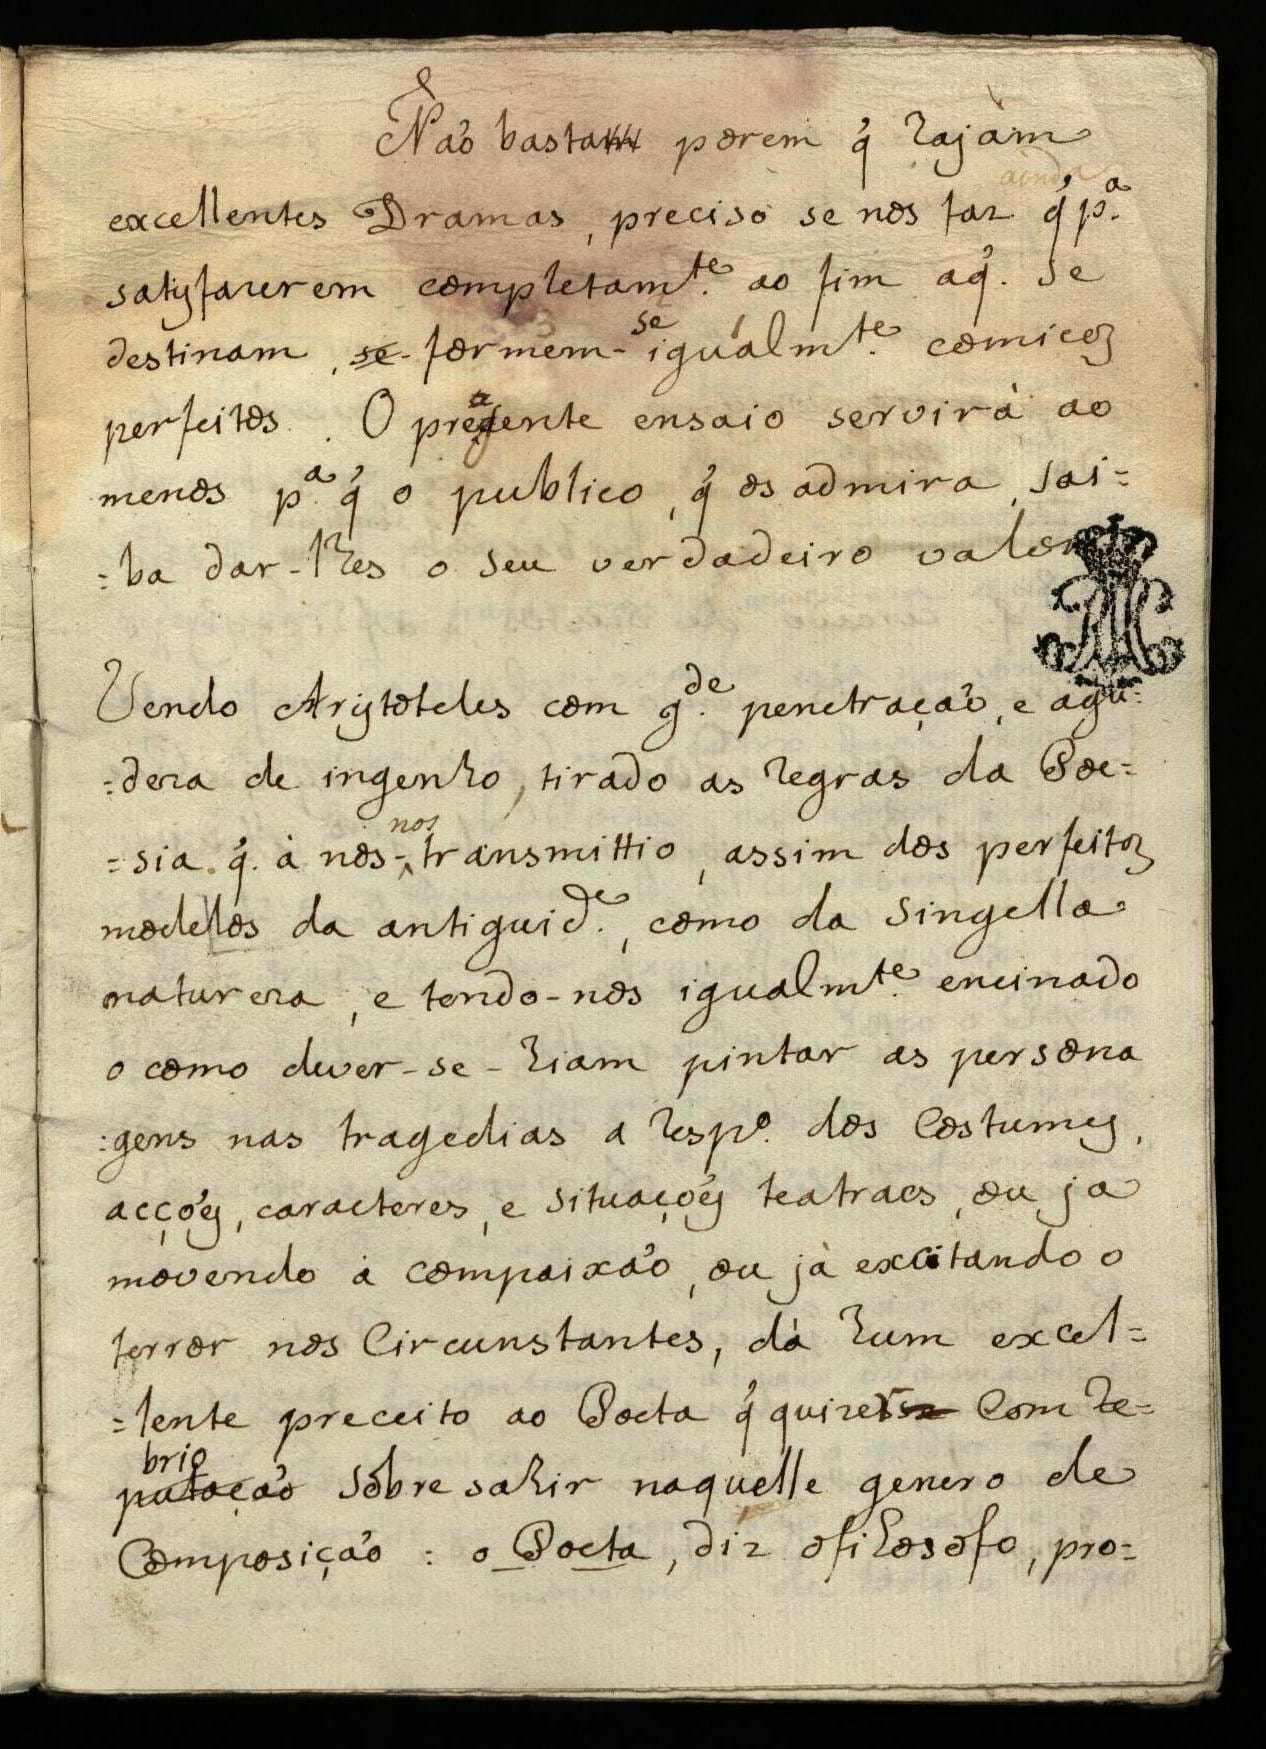 Naõ basta porem q̃ hajam
ainda
excellentes Dramas, preciso se nos faz q̃ p.ª
satisfazerem completam.te ao fim aq̃. se
destinam, se- formem-se igualm.te comicos
perfeitos. O presente ensaio servirà ao
menos p.ª q̃ o publico, q̃ os admira, sai=
=ba dar-lhes o seu verdadeiro valor
Vendo Aristoteles com g.de penetraçaõ, e agu=
=deza de ingenho, tirado as regras da Poe=
=sia. q̃. à nos- nos transmittio, assim dos perfeitos
modelos da antiguid.e, como da singella
natureza, e tendo-nos igualm.te encinado
o como dever-se-hiam pintar as persona
:gens nas tragedias a resp.o dos Costumes,
acçoẽs, caracteres, e situaçoẽs teatraes, ou ja
movendo à compaixaõ, ou jà excitando o
terror nos Circunstantes, dà hum excel=
=lente preceito ao Poeta q̃ quizer com re=
brio
putaçaõ sobresahir naquelle genero de
Composiçaõ: o Poeta, diz o filosofo, pro=